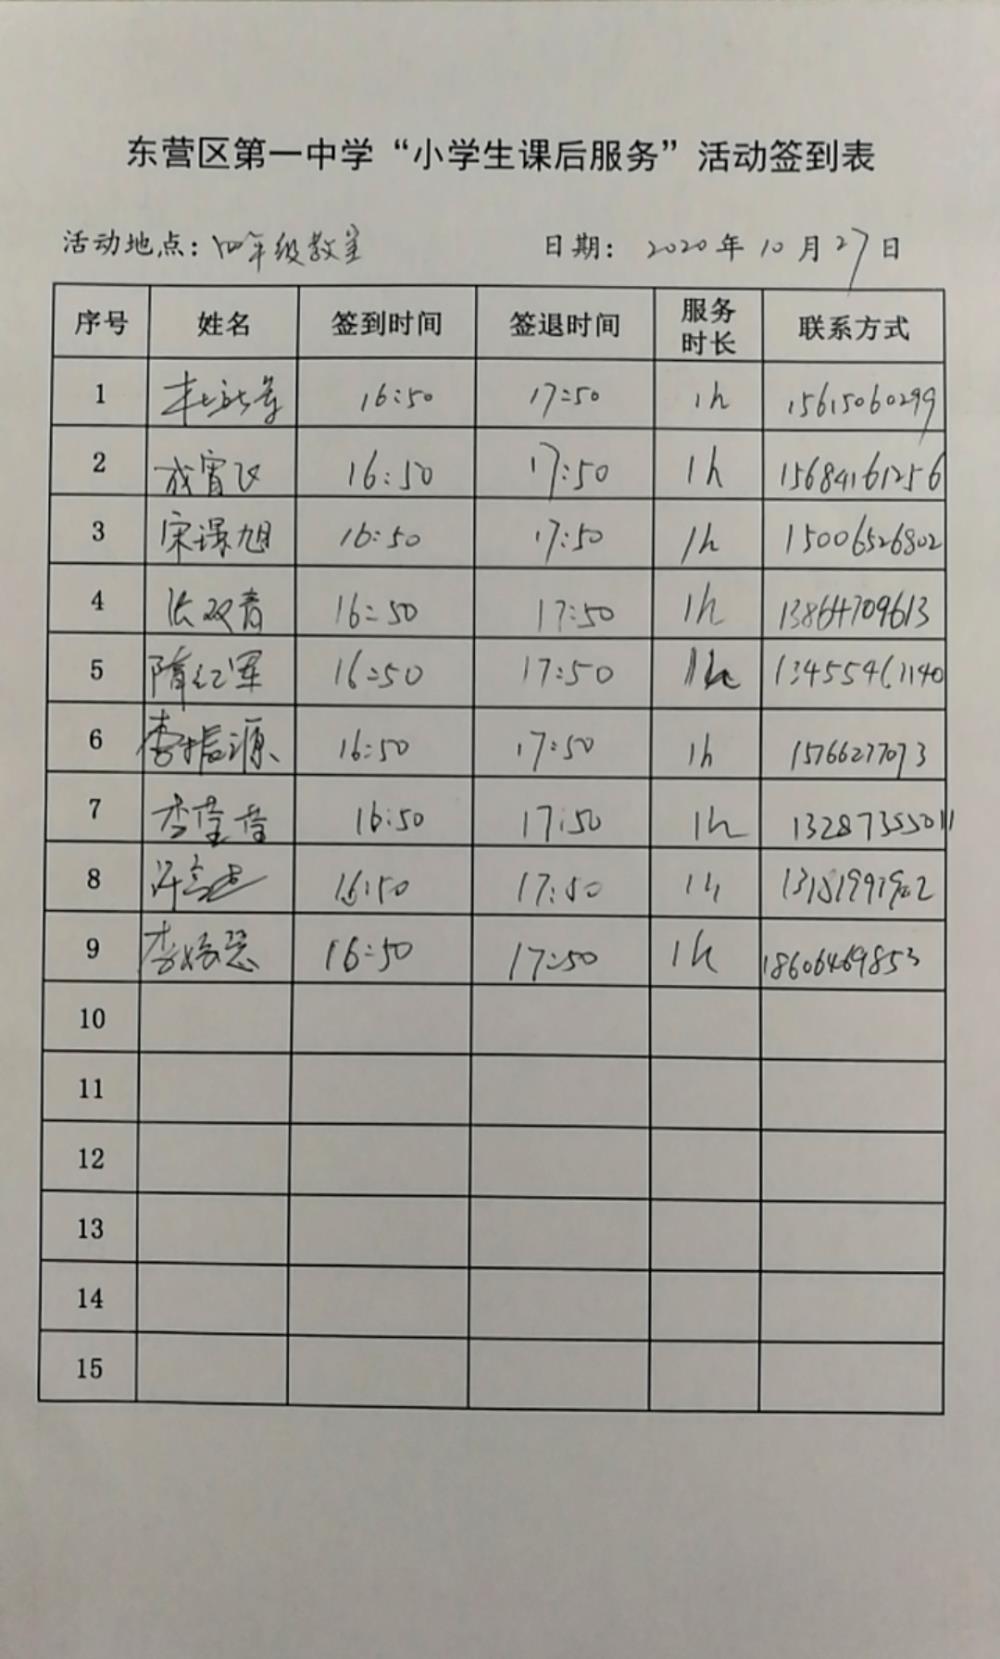 东营区第一中学“小学生课后服务”活动签到表
活动地点：四年级教室 日期：2020年10月27日
序号 姓名 签到时间 签退时间 服务时长 联系方式
1 16:50 17:50 1h 15615060299
2 成霄汉 16:50 17:50 1h 15684161256
3 宋璟旭 16:50 17:50 1h 15006526802
4 张双青 16:50 17:50 1h 13864709613
5 隋红军 16:50 17:50 1h 13455461140
6 李振源 16:50 17:50 1h 15766277073
7 李莹莹 16:50 17:50 1h 13287355011
8 16:50 17:50 1h
9 16:50 17:50 1h 18606469853
10
11
12
13
14
15